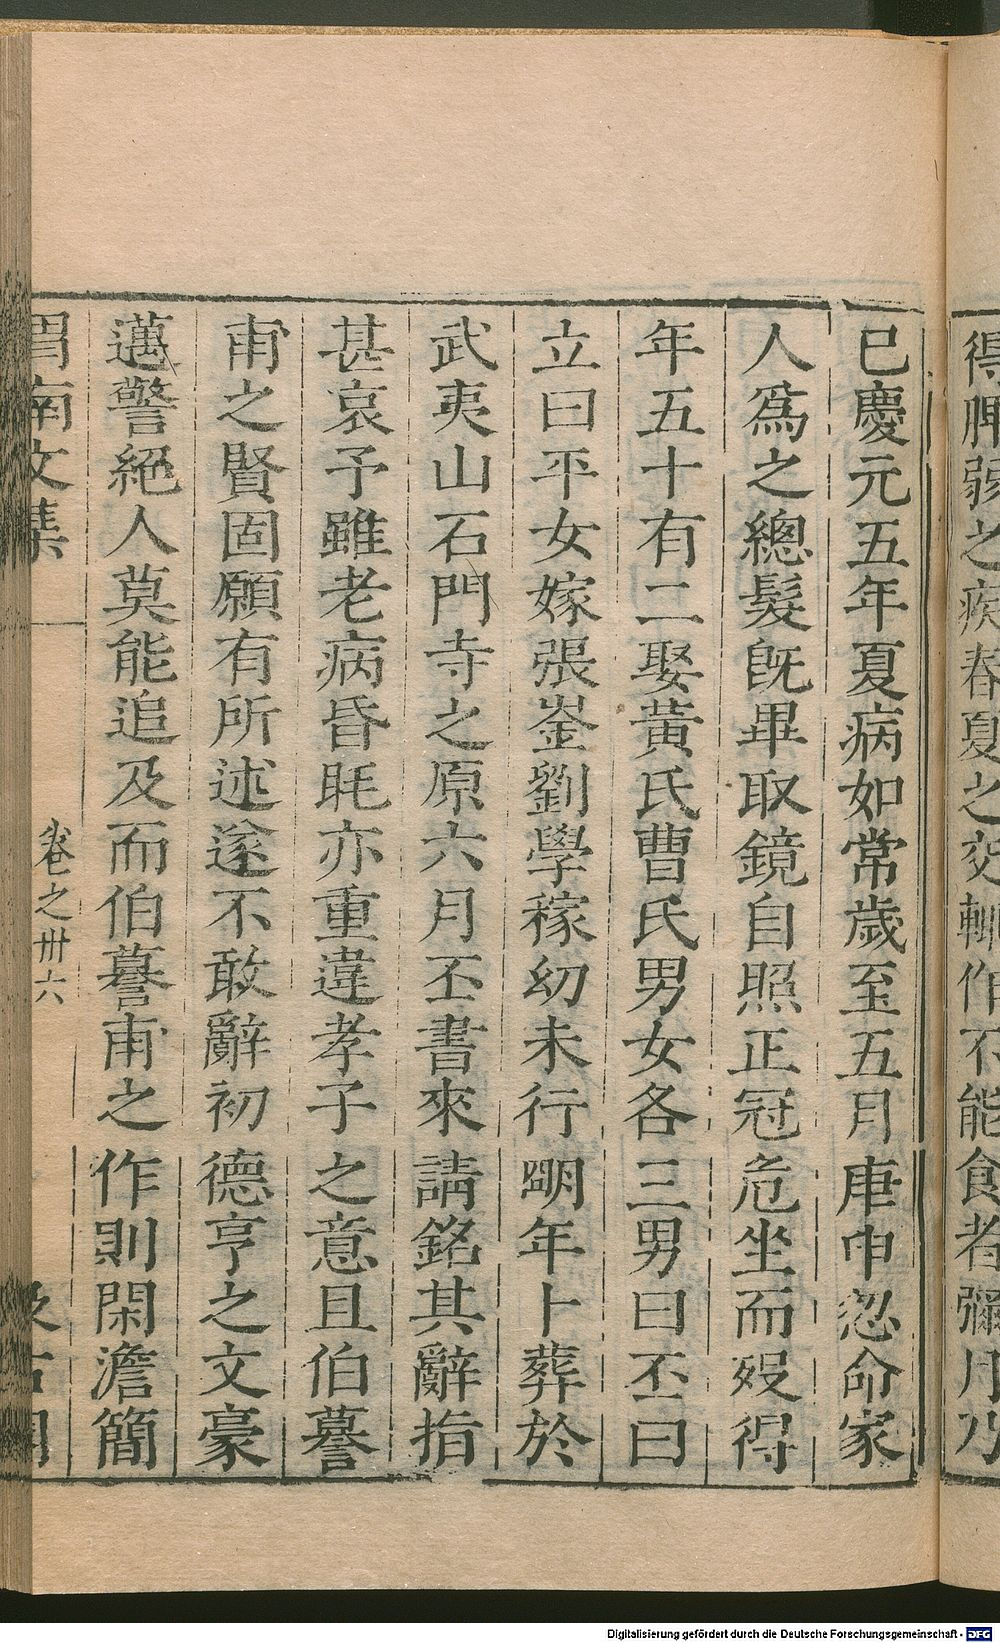 得脾弱之疾春夏之交輒作不能食者彌月乃
已慶元五年夏病如常歲至五月庚申忽命家
人爲之總髮旣畢取鏡自照正冠危坐而歿得
年五十有二娶黃氏曹氏男女各三男曰丕曰
立曰平女嫁張崟劉學稼幼未行明年卜葬於
武夷山石門寺之原六月丕書來請銘其辭指
甚哀予雖老病昏眊亦重違孝子之意且伯謩
甫之賢固願有所述遂不敢辭初德亨之文豪
邁警絕人莫能追及而伯謩甫之作則閑澹簡
渭南文集
卷之卅六
汲古閣
Digitalisierung gefördert durch die Deutsche Forschungsgemeinschaft - DFG